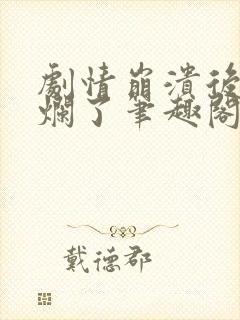 劇情崩潰後
爛了筆趣閣
戴德郡